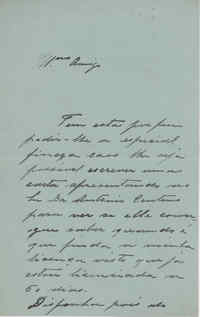 Amigo
Tem estas por fim
pedir-lhe a especial
fineza caso lhe seja
possivel escrever uma
carta apresentando-me
ao Sr. Antonio Centeno
para ver se elle con
que saber quando é
que finda a minha
licença visto que ja
estou licenciado a
60 dias.
Disponha pois do